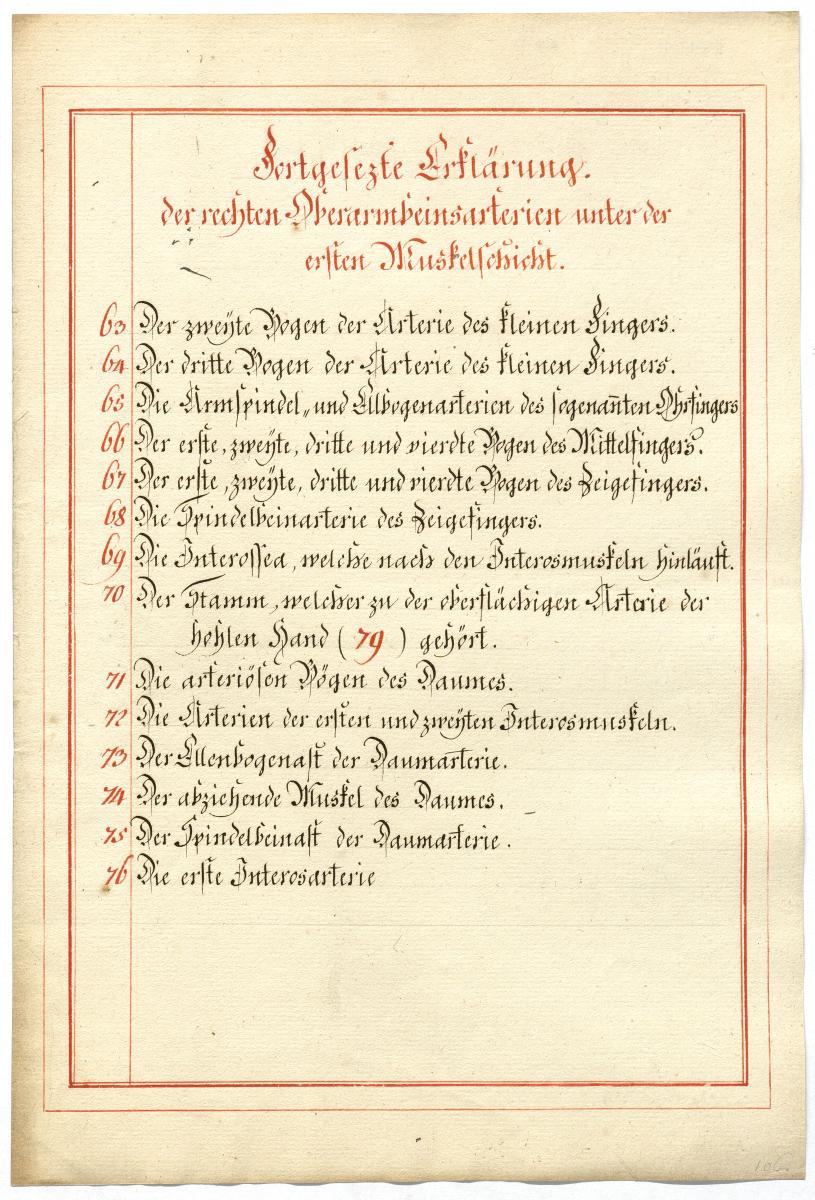 Fortgesezte Erklärung.
der rechten Oberarmbeinsarterien unter der
ersten Muskelschicht.
63 Der zweÿte Bogen der Arterie des kleinen Fingers.
64 Der dritte Bogen der Arterie des kleinen Fingers.
65 Die Armspindel„ und Ellbogenarterien des sogenan̄ten Ohrfingers
66 Der erste, zweÿte, dritte und vierdte Bogen des Mittelfingers.
67 Der erste, zweÿte, dritte und vierdte Bogen des Zeigefingers.
68 Die Spindelbeinarterie des Zeigefingers.
69 Die Interossea, welche nach den Interosmuskeln hinläuft.
70 Der Stamm, welcher zu der oberflächigen Arterie der
hohlen Hand (79) gehört.
71 Die arteriösen Bögen des Daumes.
72 Die Arterien der ersten und zweÿten Interosmuskeln.
73 Der Ellenbogenast der Daumarterie.
74 Der abziehende Muskel des Daumes.
75 Der Spindelbeinast der Daumarterie.
76 Die erste Interosarterie
106